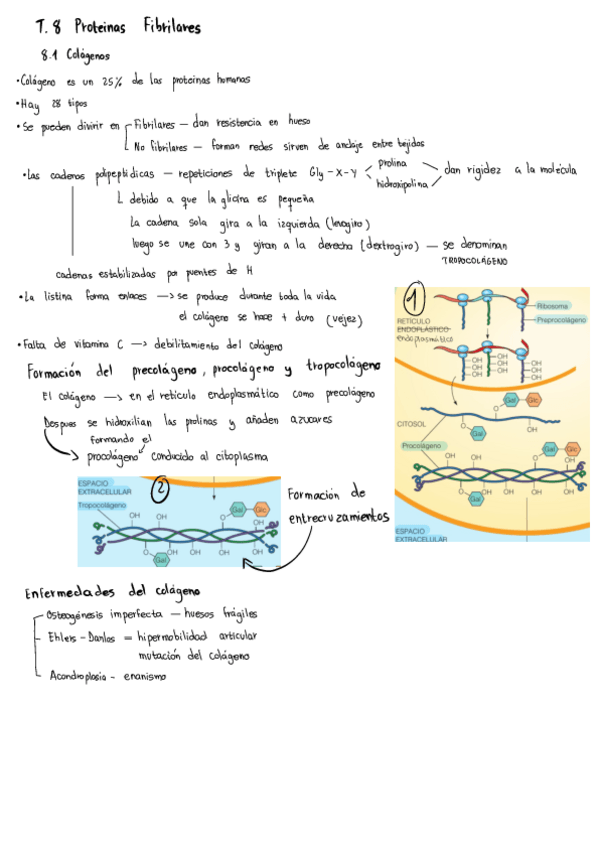 T.8 Proteinas Fibrilares
8.1 Colágenos
•Colágeno es un 25% de las proteinas humanas
•Hay 28 tipos
•Se pueden divirir en Fibrilares — dan resistencia en hueso
No fibrilares — forman redes sirven de anclaje entre tejidos
•Las cadenas polipeptidicas — repeticiones de triplete Gly-X-Y
prolina
hidroxipolina
dan rigidez a la molécula
debido a que la glicina es pequeña
La cadena sola gira a la izquierda (levogiro)
luego se une con 3 y giran a la derecha (dextrogiro) — se denominan
TROPOCOLÁGENO
cadenas estabilizadas por puentes de H
•La listina forma enlaces —> se produce durante toda la vida
el colágeno se hace + duro (vejez)
•Falta de vitamina C —> debilitamiento del colágeno
Formación del precolágeno, procolágeno y tropocolágeno
El colágeno —> en el retículo endoplasmático como precolágeno
Despues se hidroxilian las prolinas y añaden azucares
formando el
procolágeno conducido al citoplasma
1
Ribosoma
Preprocolágeno
RETÍCULO
ENDOPLÁSTICO
endoplasmático
OH OH OH
OH OH OH
OH OH OH
Gal Glc
O
CITOSOL
O
Gal
OH
Procolágeno
Gal Glc
OH OH O OH
O OH OH OH OH
Gal
ESPACIO
EXTRACELULAR
ESPACIO
EXTRACELULAR
2
Tropocolágeno
Gal Glc
OH OH O OH
O OH OH OH OH
Gal
Formación de
entrecruzamientos
Enfermedades del colágeno
Osteogénesis imperfecta — huesos frágiles
Ehlers-Danlos = hipermobilidad articular
mutación del colágeno
Acondroplasia - enanismo